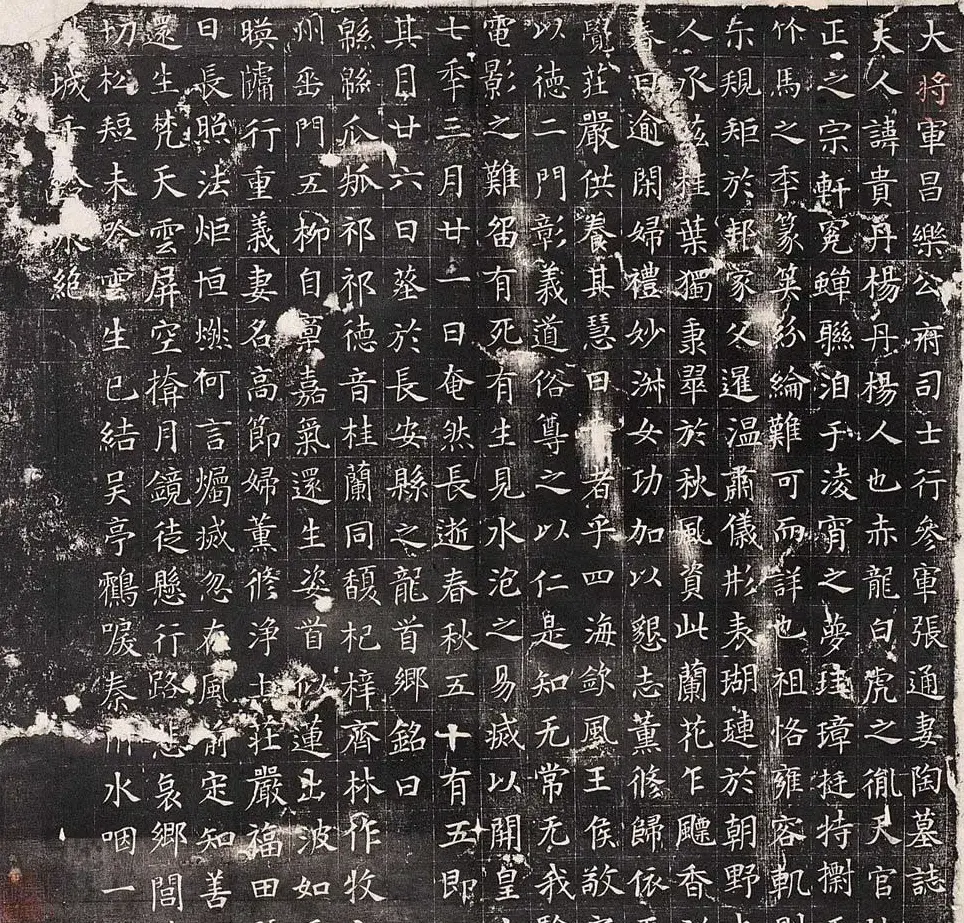 大將軍昌樂公府司士行參軍張通妻陶墓誌
夫人諱貴丹楊丹楊人也赤龍白虎之胤天官
正之宗軒冕蟬聯洎于淩霄之夢珪璋挺特擲
竹馬之年篆籀紛綸難可而詳也祖恪雍容軌
尓䂓矩於邦家父暹温肅儀形表瑚璉於朝野
人承茲桂葉獨秉翠於秋風資此蘭花乍飄香
春日逾閑婦禮妙洲女功加以懇志薰脩歸依
覺莊嚴供養其慧日者乎四海欽風王侯敬
以德二門彰義道俗尊之以仁是知无常无我
電影之難留有死有生見水泡之易滅以開皇
七年三月廿一日奄然長逝春秋五十有五即
其月廿六日葬於長安縣之龍首鄉銘曰
緜緜瓜瓞祁祁德音桂蘭同馥杞梓齊林作牧
州垂門五柳自稟嘉氣還生姿首似蓮出波如
暎牖行重義妻名高節婦薰脩淨土莊嚴福田
日長照法炬恒燃何言燭滅忽在風前定知善
還生梵天雲屏空揜月鏡徒懸行路悲哀鄉閭
切松短未吟雲生已結吴亭鶴唳秦川水咽一
城千永絕